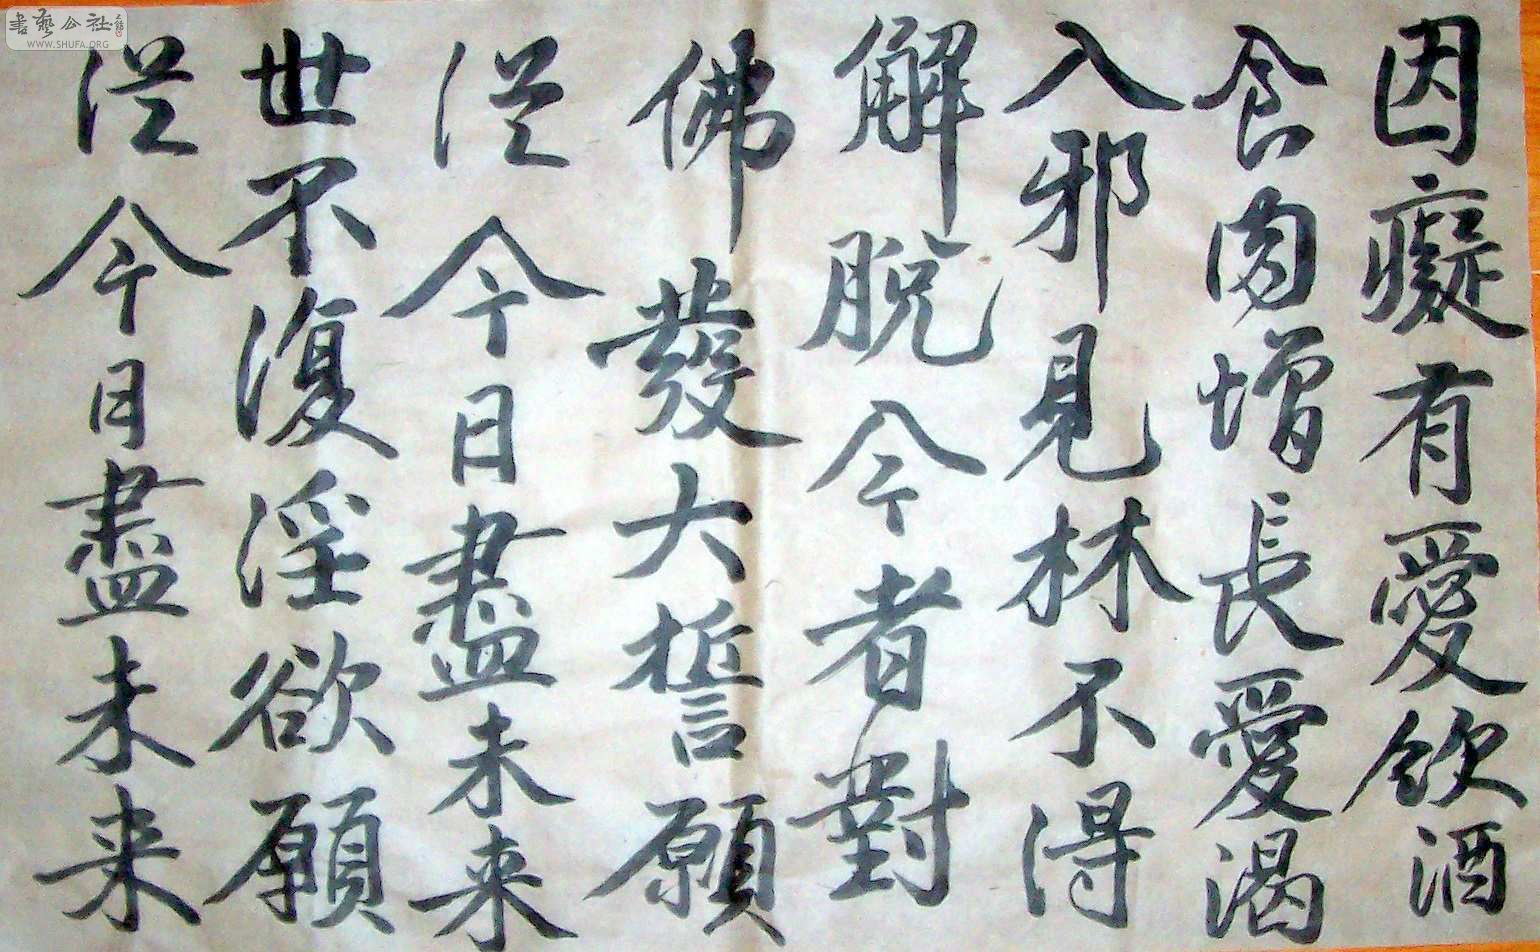 因癡有愛飲酒
食肉增長愛渴
入邪見林不得
解脫今者對
佛發大誓願
從今日盡未来
世不復淫欲願
從今日盡未来
書藝公社
WWW.SHUFA.ORG